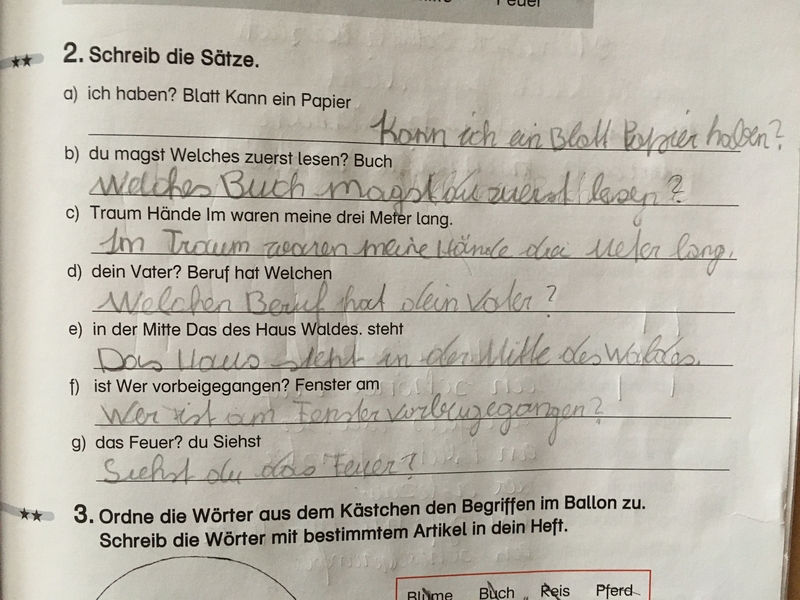 Feuer
** 2. Schreib die Sätze.
a) ich haben? Blatt Kann ein Papier
Kann ich ein Blatt Papier haben?
b) du magst Welches zuerst lesen? Buch
Welches Buch magst du zuerst lesen?
c) Traum Hände Im waren meine drei Meter lang.
Im Traum waren meine Hände drei Meter lang.
d) dein Vater? Beruf hat Welchen
Welchen Beruf hat dein Vater?
e) in der Mitte Das des Haus Waldes. steht
Das Haus steht in der Mitte des Waldes.
f) ist Wer vorbeigegangen? Fenster am
Wer ist am Fenster vorbeigegangen?
g) das Feuer? du Siehst
Siehst du das Feuer?
** 3. Ordne die Wörter aus dem Kästchen den Begriffen im Ballon zu.
Schreib die Wörter mit bestimmtem Artikel in dein Heft.
Blume Buch Reis Pferd